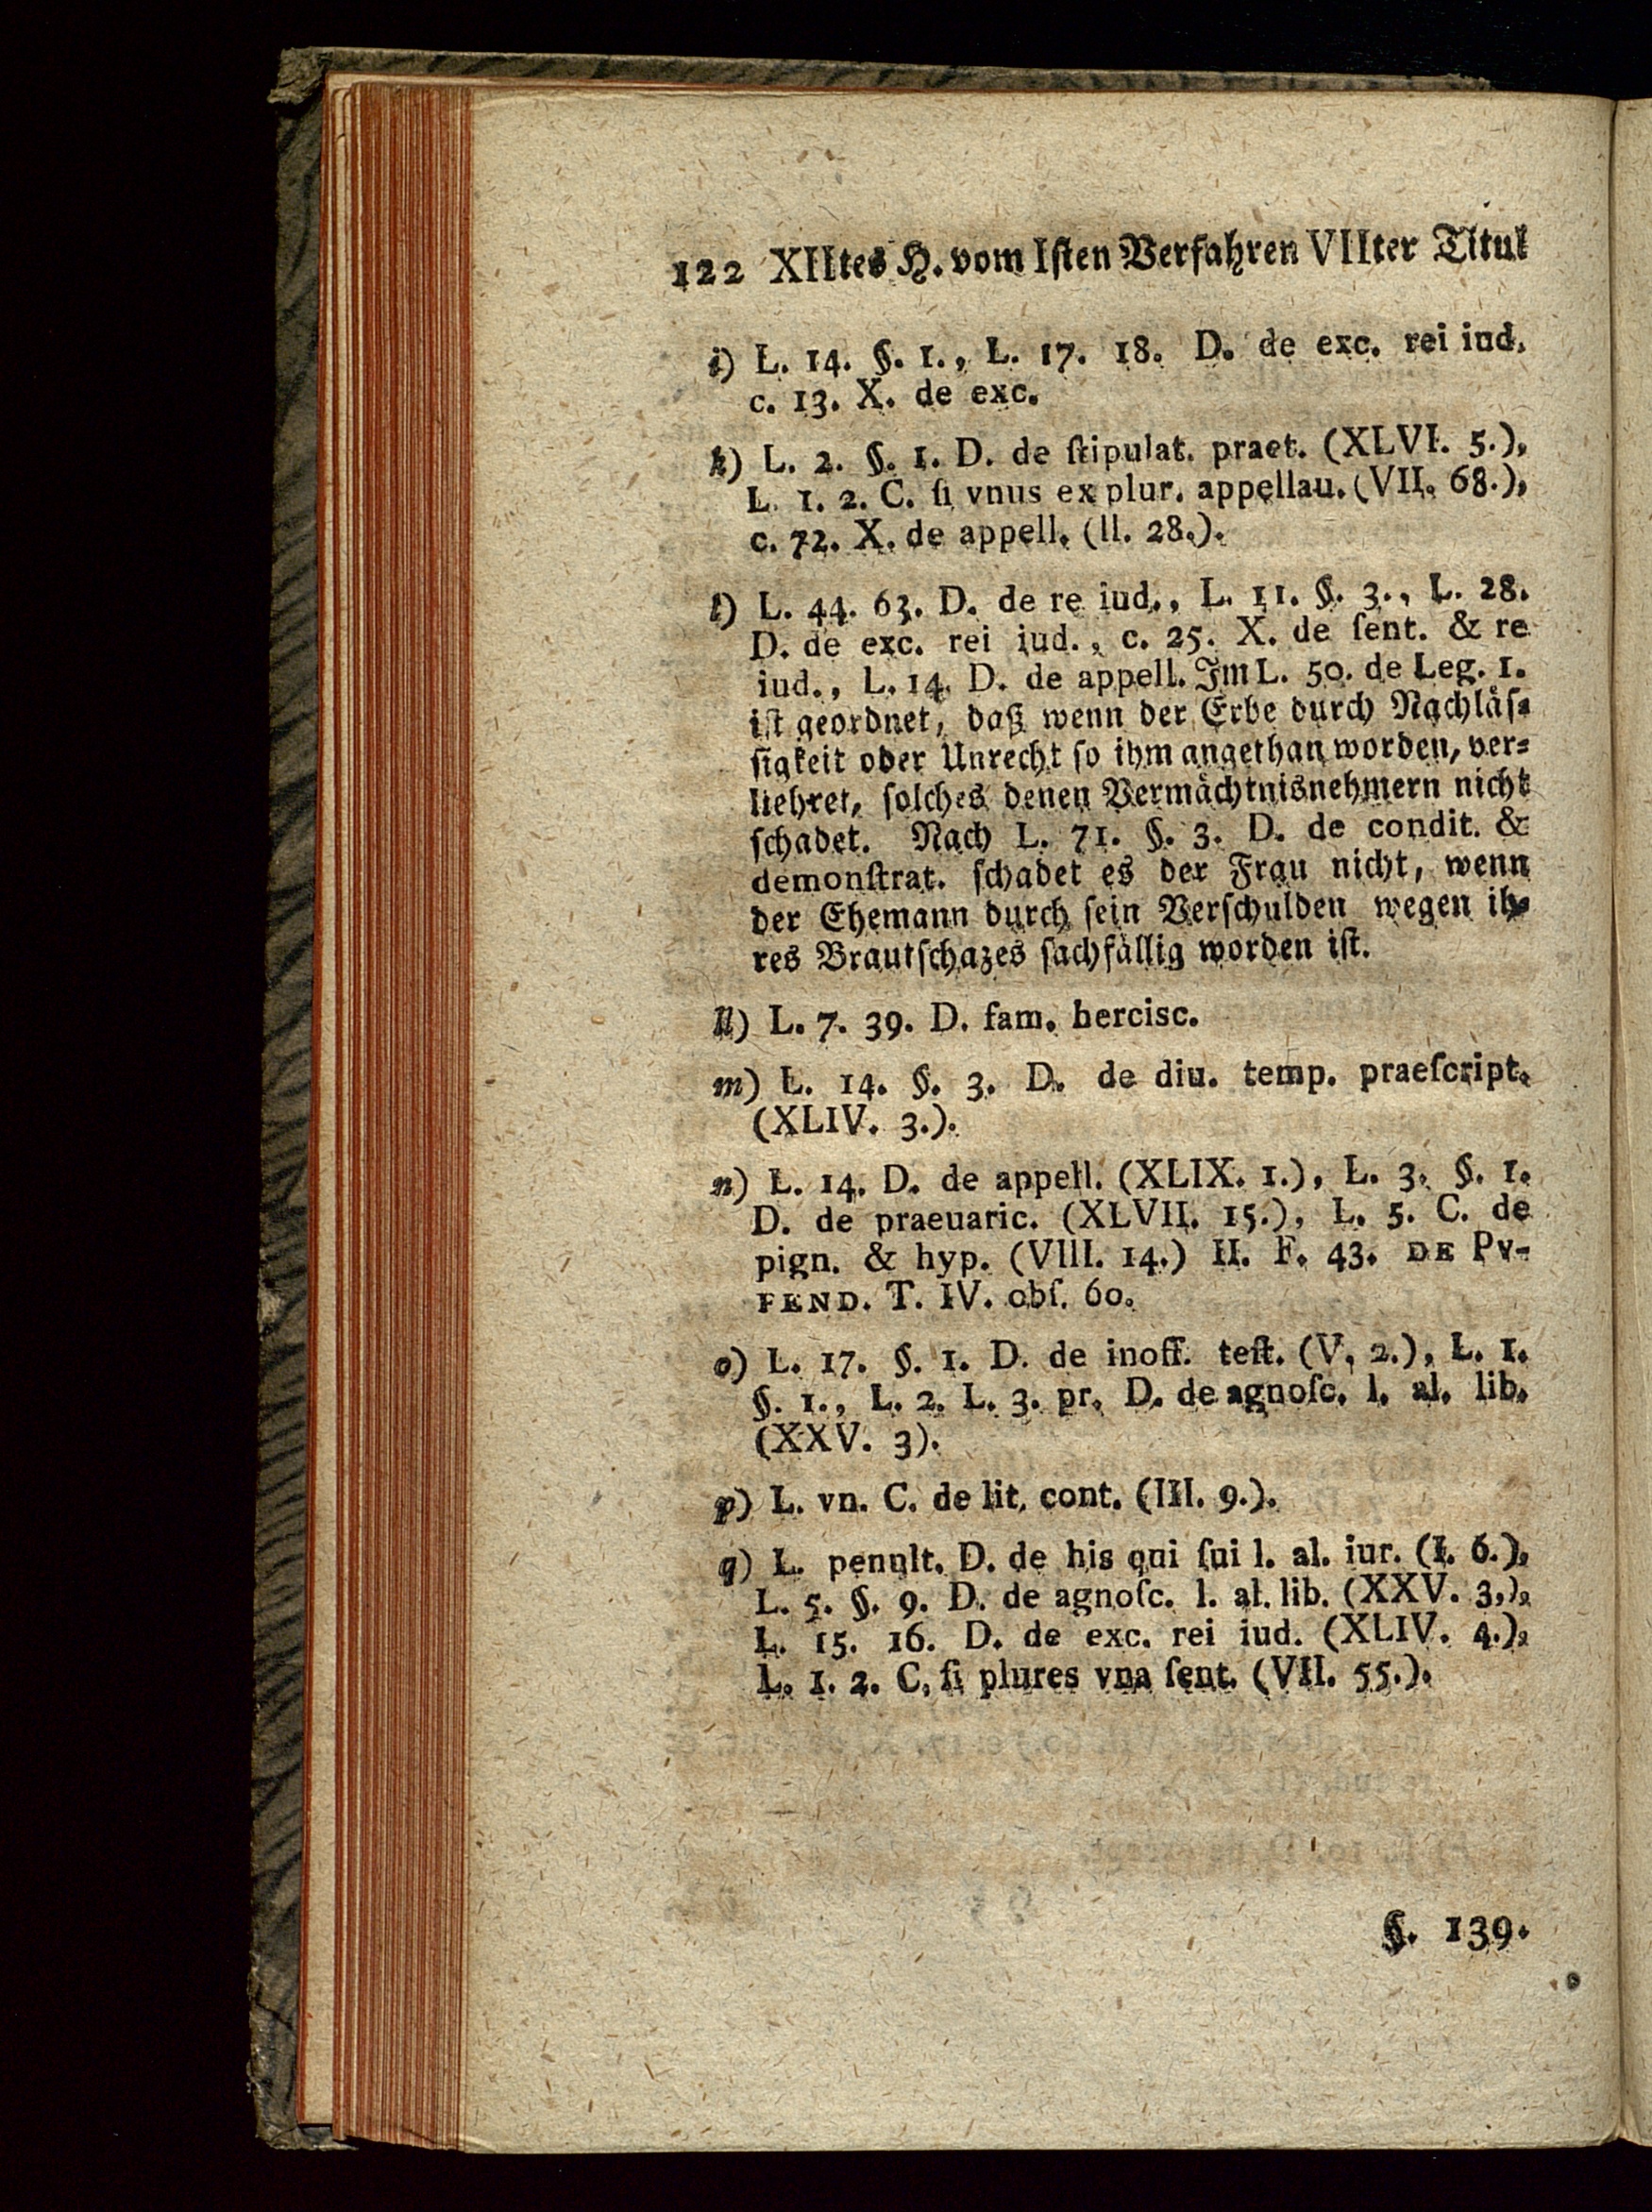 122 XIItes H. vom Iſten Verfahren VIIter Titul
i) L. 14. §. 1., L. 17. 18. D. de exc. rei iud.
c. 13. X. de exc.
k) L. 2. §. 1. D. de ſtipulat. praet. (XLVI. 5.),
L. 1. 2. C. ſi vnus ex plur. appellau. (VII. 68.),
c. 72. X. de appell. (II. 28.).
l) L. 44. 63. D. de re iud., L. 11. §. 3., L. 28.
D. de exc. rei iud., c. 25. X. de ſent. & re
iud., L. 14. D. de appell. Im L. 50. de Leg. 1.
iſt geordnet, daß wenn der Erbe durch Nachläſ⸗
ſigkeit oder Unrecht ſo ihm angethan worden, ver⸗
liehret, ſolches denen Vermächtnisnehmern nicht
ſchadet. Nach L. 71. §. 3. D. de condit. &
demonſtrat. ſchadet es der Frau nicht, wenn
der Ehemann durch ſein Verſchulden wegen ih⸗
res Brautſchazes ſachfällig worden iſt.
ll) L. 7. 39. D. fam. hercisc.
m) L. 14. §. 3. D. de diu. temp. praeſcript.
(XLIV. 3.).
n) L. 14. D. de appell. (XLIX. 1.), L. 3. §. 1.
D. de praeuaric. (XLVII. 15.), L. 5. C. de
pign. & hyp. (VIII. 14.) II. F. 43. DE PV-
FEND. T. IV. obſ. 60.
o) L. 17. §. 1. D. de inoff. teſt. (V, 2.), L. 1.
§. 1., L. 2. L. 3. pr. D. de agnoſc. l. al. lib.
(XXV. 3).
p) L. vn. C. de lit. cont. (III. 9.).
q) L. penult. D. de his qui ſui l. al. iur. (I. 6.),
L. 5. §. 9. D. de agnoſc. l. al. lib. (XXV. 3,),
L. 15. 16. D. de exc. rei iud. (XLIV. 4.),
L. 1. 2. C. ſi plures vna ſent. (VII. 55.).
§. 139.